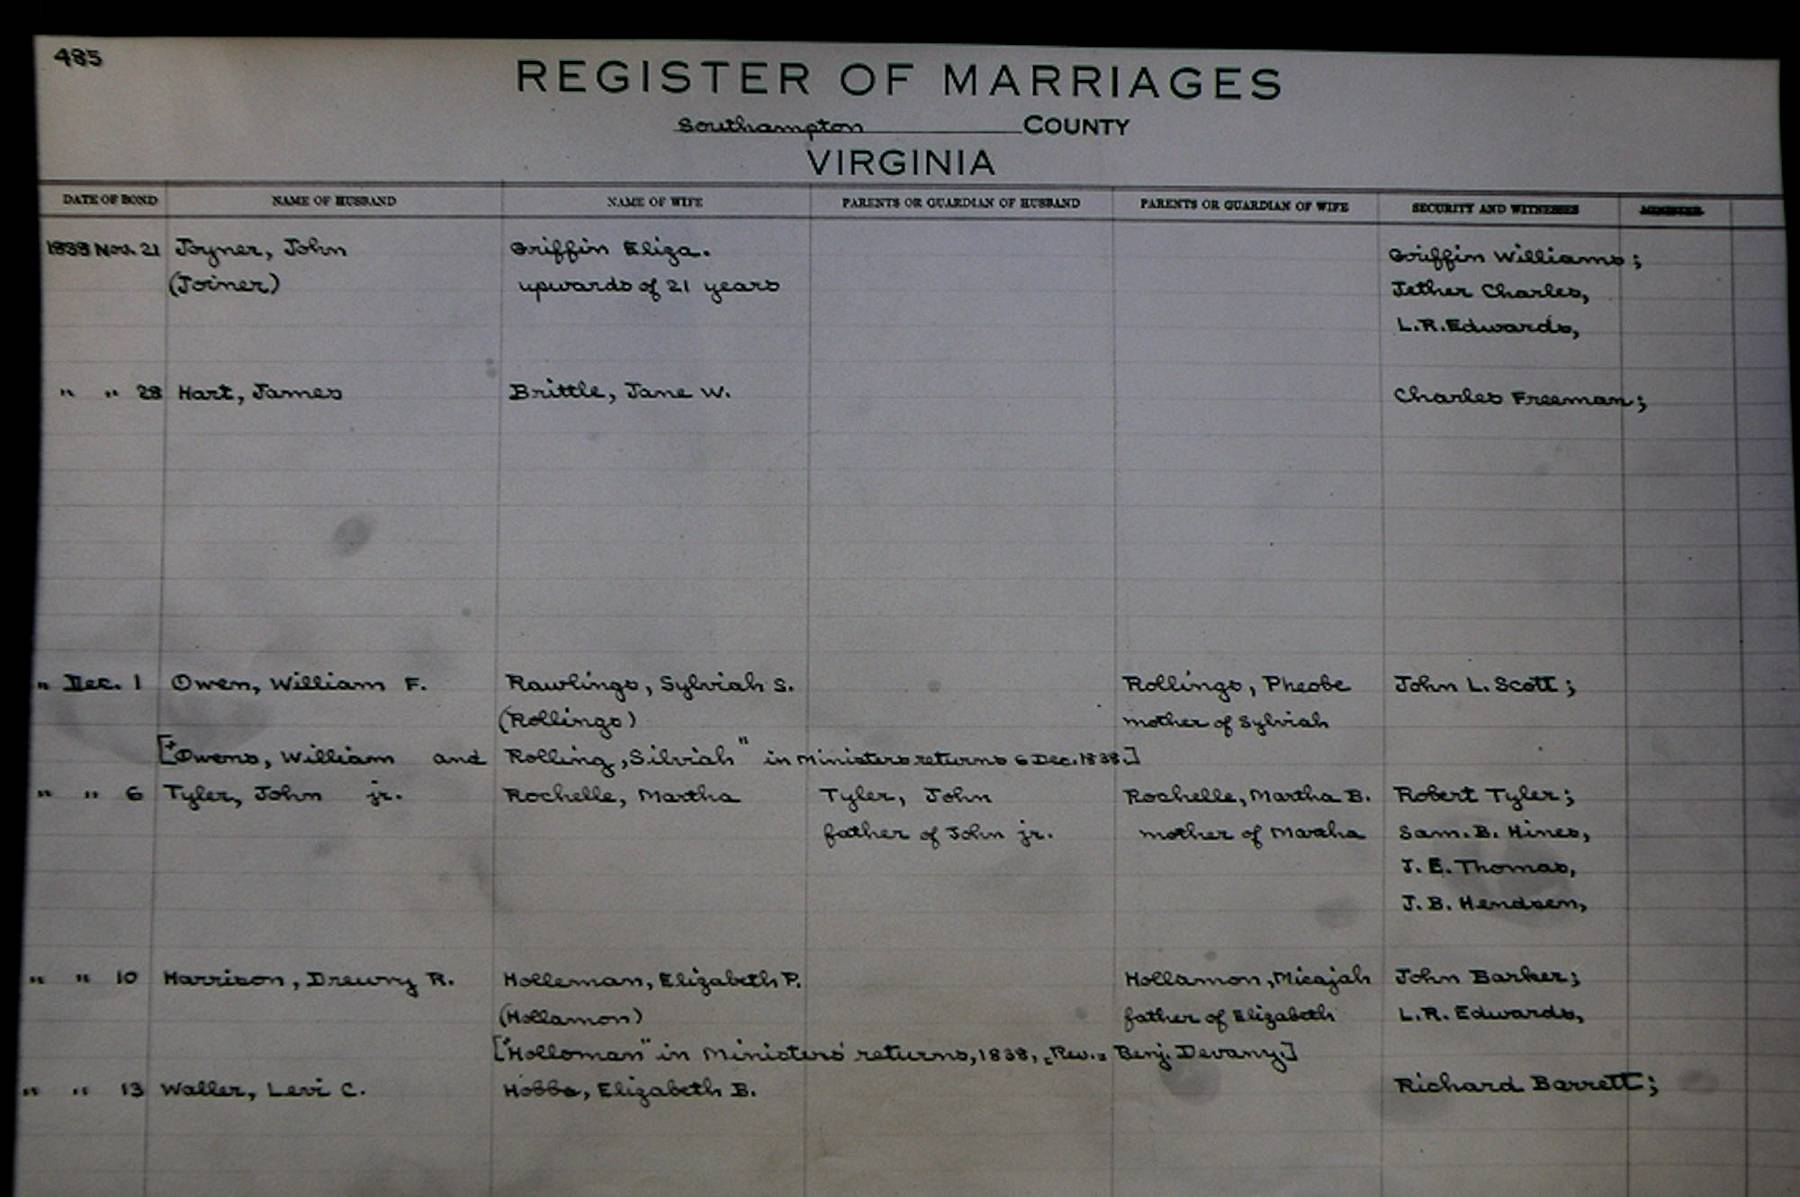 485
REGISTER OF MARRIAGES
Southampton COUNTY
VIRGINIA
DATE OF BOND NAME OF HUSBAND NAME OF WIFE PARENTS OR GUARDIAN OF HUSBAND PARENTS OR GUARDIAN OF WIFE SECURITY AND WITNESSES MINISTER
1838 Nov. 21 Joyner, John Griffin Eliza. Griffin Williams;
(Joiner) upwards of 21 years Jether Charles,
L.R. Edwards,
" " 28 Hart, James Brittle, Jane W. Charles Freeman;
" Dec. 1 Owen, William F. Rawlings, Sylviah S. Rollings, Pheobe John L. Scott;
(Rollings) mother of Sylviah
["Owens, William and Rolling, Silviah" in Ministers returns 6 Dec. 1838.]
" " 6 Tyler, John jr. Rochelle, Martha Tyler, John Rochelle, Martha B. Robert Tyler;
father of John jr. mother of Martha Sam. B. Hines,
J. E. Thomas,
J. B. Hendsen,
" " 10 Harrison, Drewry R. Holleman, Elizabeth P. Hollamon, Micajah John Barker;
(Hollamon) father of Elizabeth L.R. Edwards,
["Holloman" in Ministers' returns, 1838, "Rev." Benj. Devany.]
" " 13 Waller, Levi C. Hobbs, Elizabeth B. Richard Barrett;